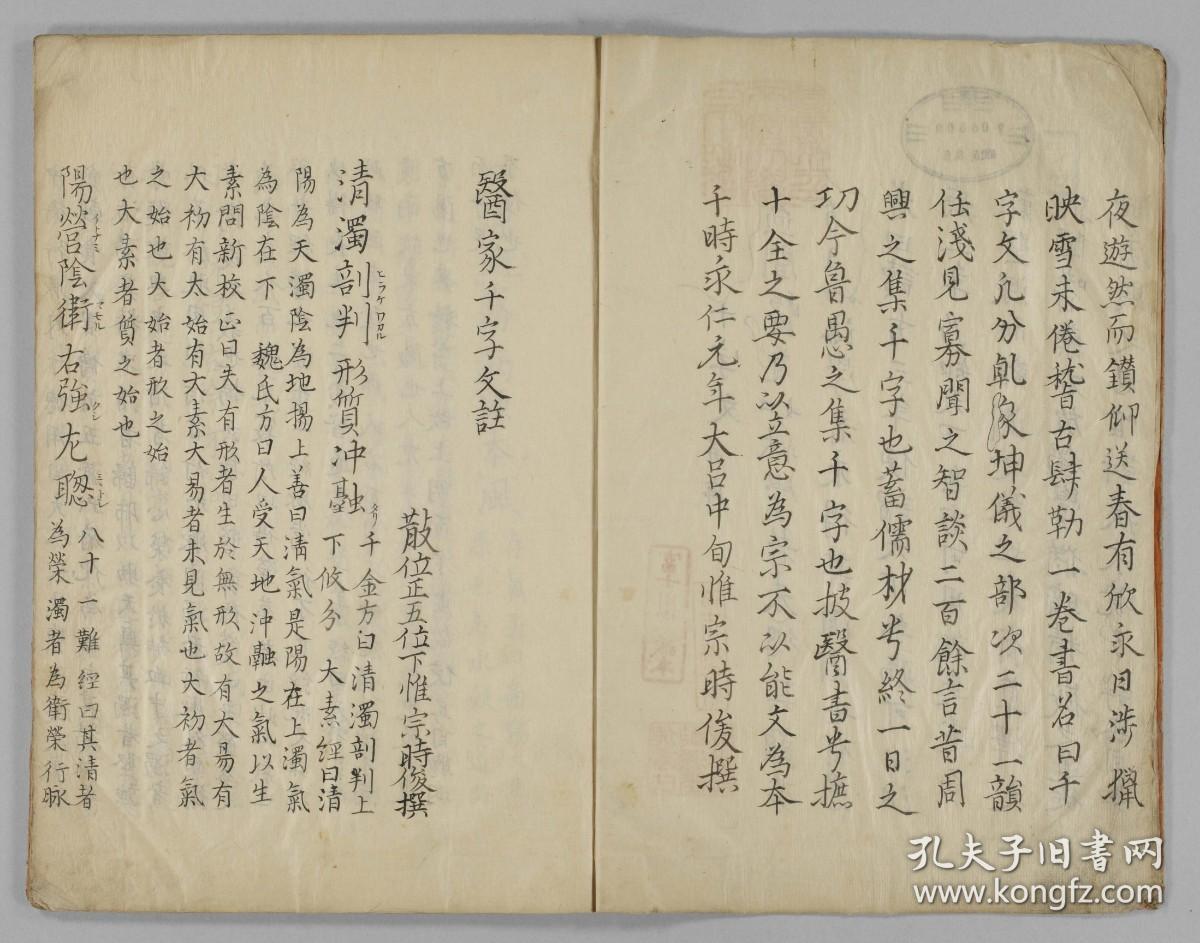 夜遊然而鑽仰送春有攸永日渉獵
映雪未倦稽古肆勒一卷書名曰千
字文凢分乹象坤儀之部次二十一韻
任淺見寡聞之智談二百餘言昔周
興之集千字也蓄儒材兮終一日之
功今魯愚之集千字也披醫書兮摭
十全之要乃以立意為宗不以能文為本
于時永仁元年大呂中旬惟宗時俊撰
醫家千字文註
散位正五位下惟宗時俊撰
清濁剖判 形質冲融 千金方曰清濁剖判上
ヒラケワカル
下攸分 大素經曰清
陽為天濁陰為地揚上善曰清氣是陽在上濁氣
為陰在下 魏氏方曰人受天地沖融之氣以生
素問新校正曰夫有形者生於無形故有大易有
大初有太始有大素大易者未見氣也大初者氣
之始也大始者形之始
也大素者質之始也
陽營陰衛右強左聰 八十一難經曰其清者
イトナミ マモル
為榮濁者為衛榮行脉
孔夫子旧书网
www.kongfz.com